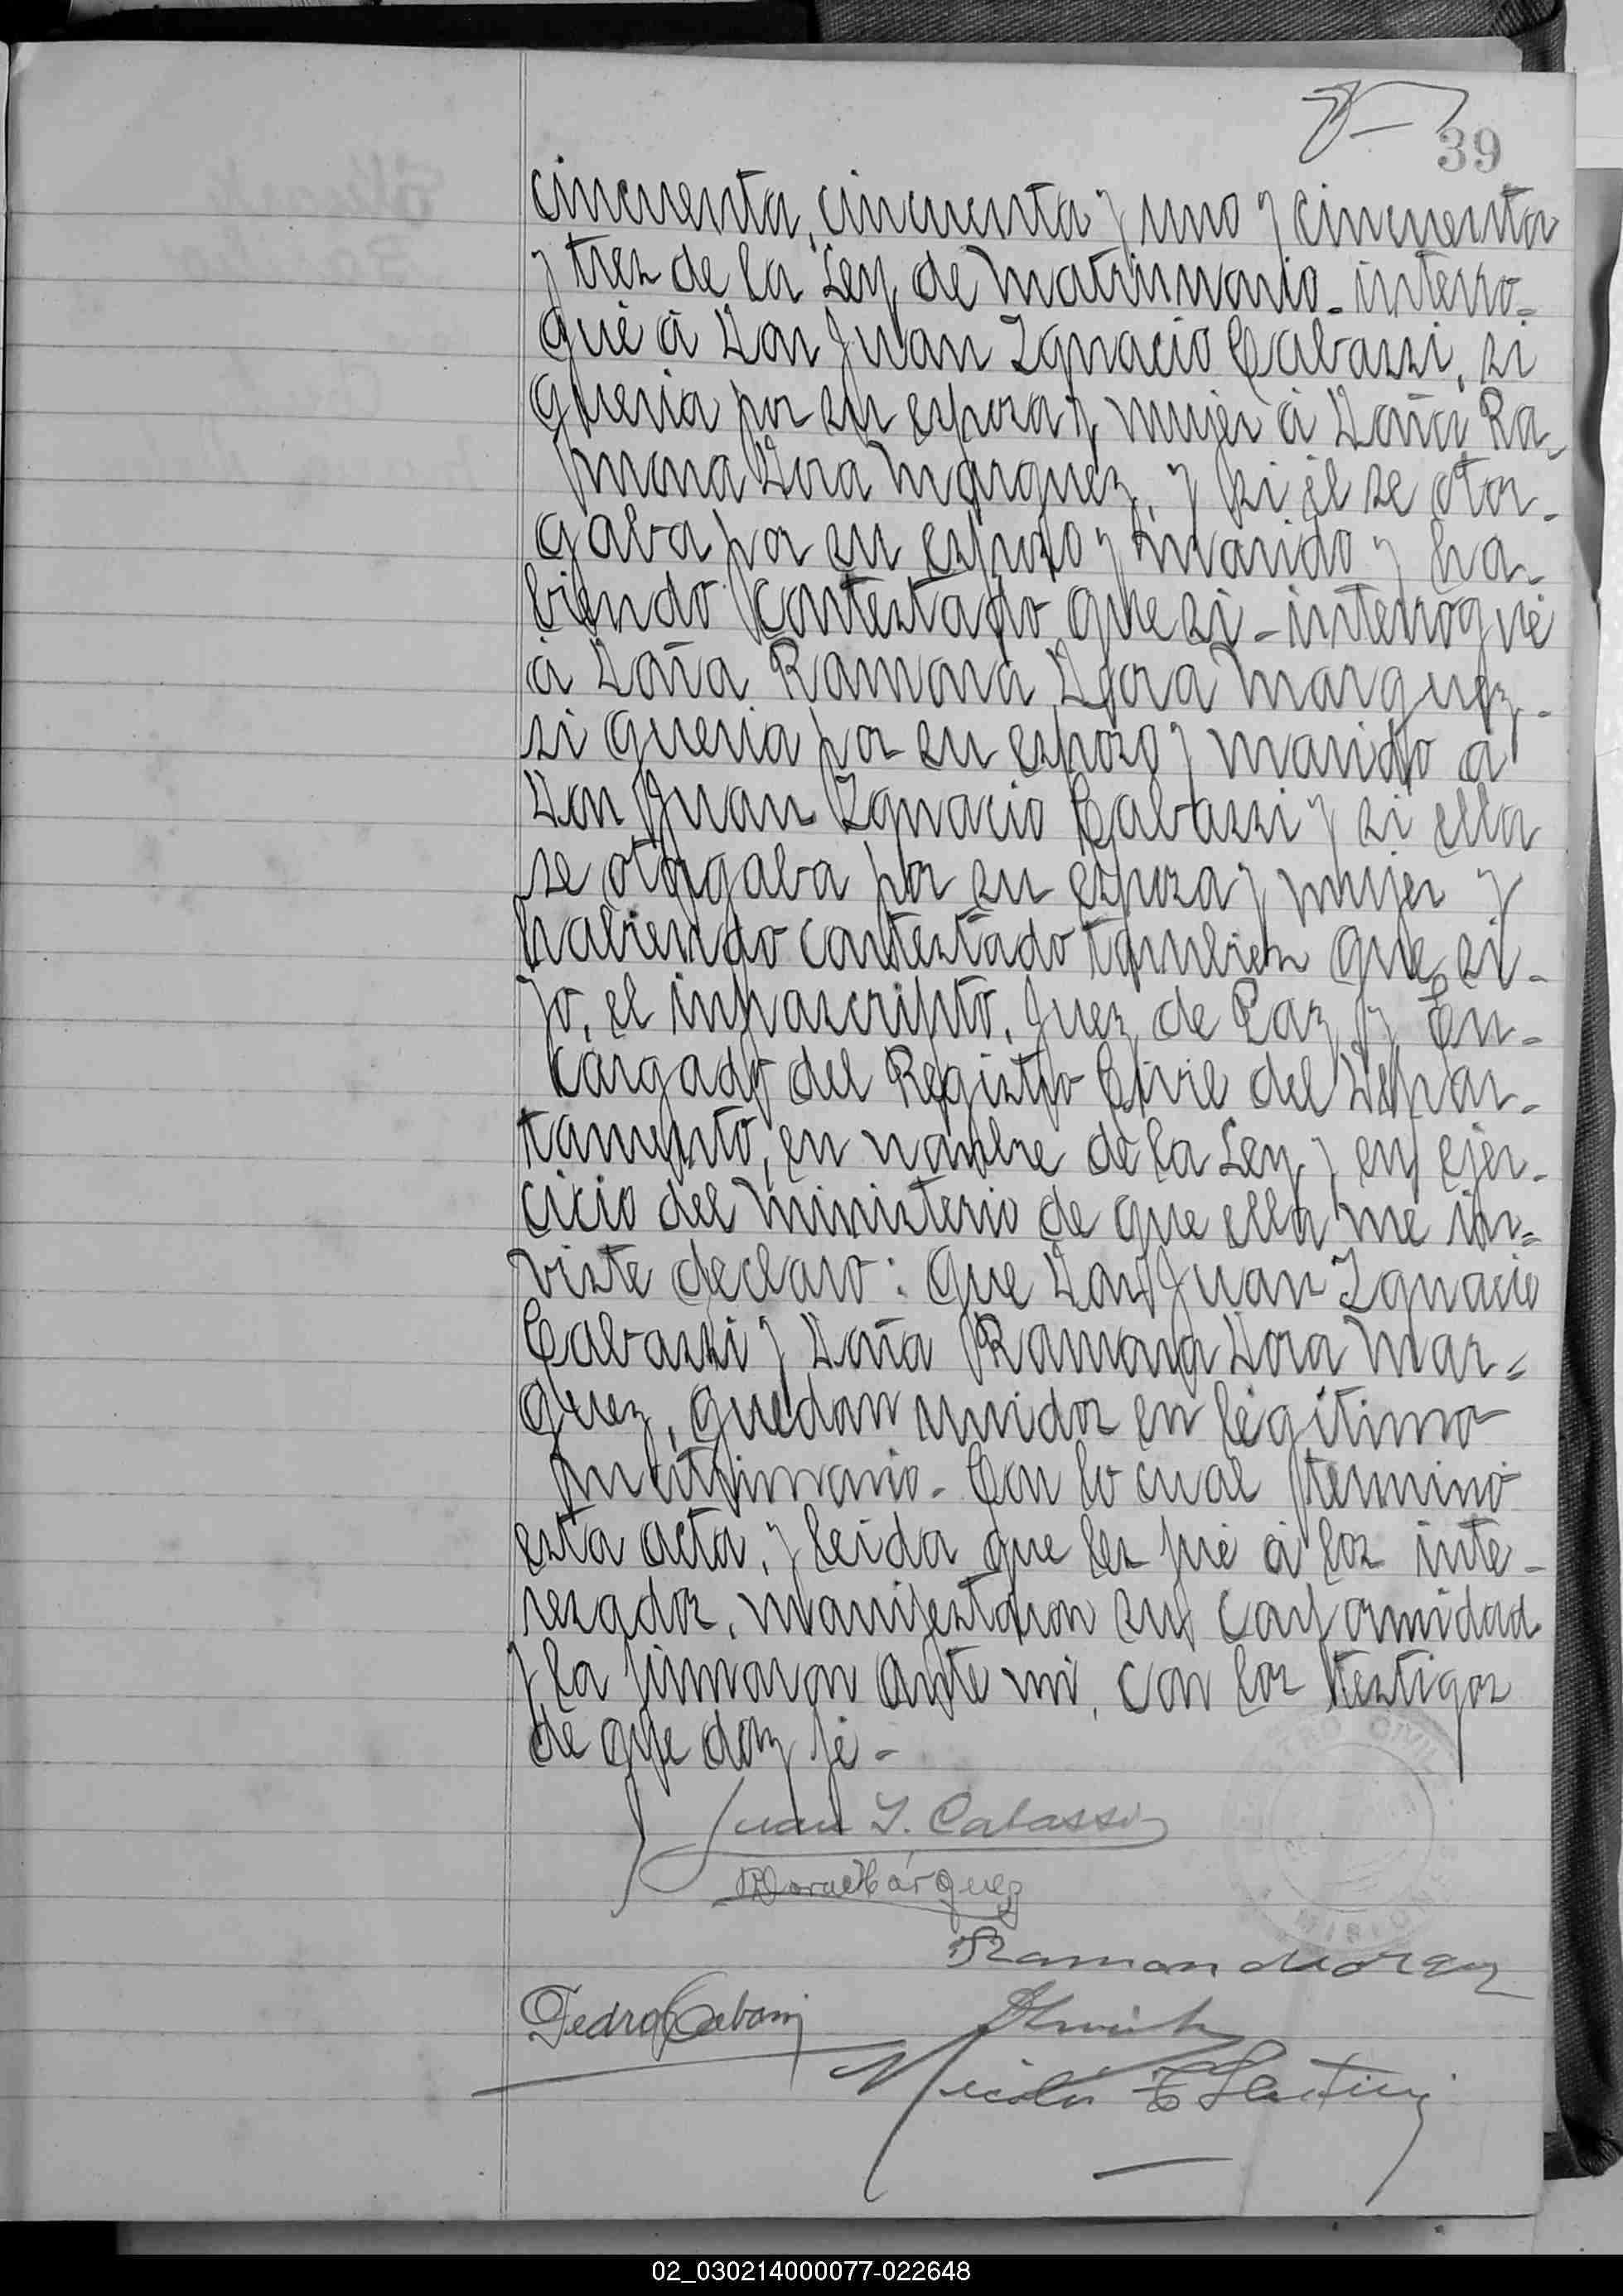 39
cincuenta, cincuenta y uno y cincuenta
y tres de la Ley de Matrimonio - interro-
gué á Don Juan Ignacio Cabassi, si
queria por su esposa y mujer á Doña Ra-
mona Dora Marquez, y si él se otor-
gaba por su esposo y marido y ha-
biendo contestado que si - interrogué
á Doña Ramona Dora Marquez -
si queria por su esposo y marido a
Don Juan Ignacio Cabassi y si ella
se otorgaba por su esposa y mujer y
habiendo contestado tambien que si -
yo, el infrascripto, Juez de Paz y En-
cargado del Registro Civil del Depar-
tamento, en nombre de la Ley y en ejer-
cicio del ministerio de que ella me in-
viste declaro: Que Don Juan Ignacio
Cabassi y Doña Ramona Dora Mar-
quez, quedan unidos en legítimo
matrimonio - Con lo cual terminó
esta acta, y leida que les fué á los inte-
resados, manifestaron su conformidad
y la firmaron ante mi, con los testigos
de que doy fé -
Juan I. Cabassi
R Dora Márquez
Ramon
Pedro Cabassi
Nicolás
REGISTRO CIVIL
MISIONES
02_030214000077-022648